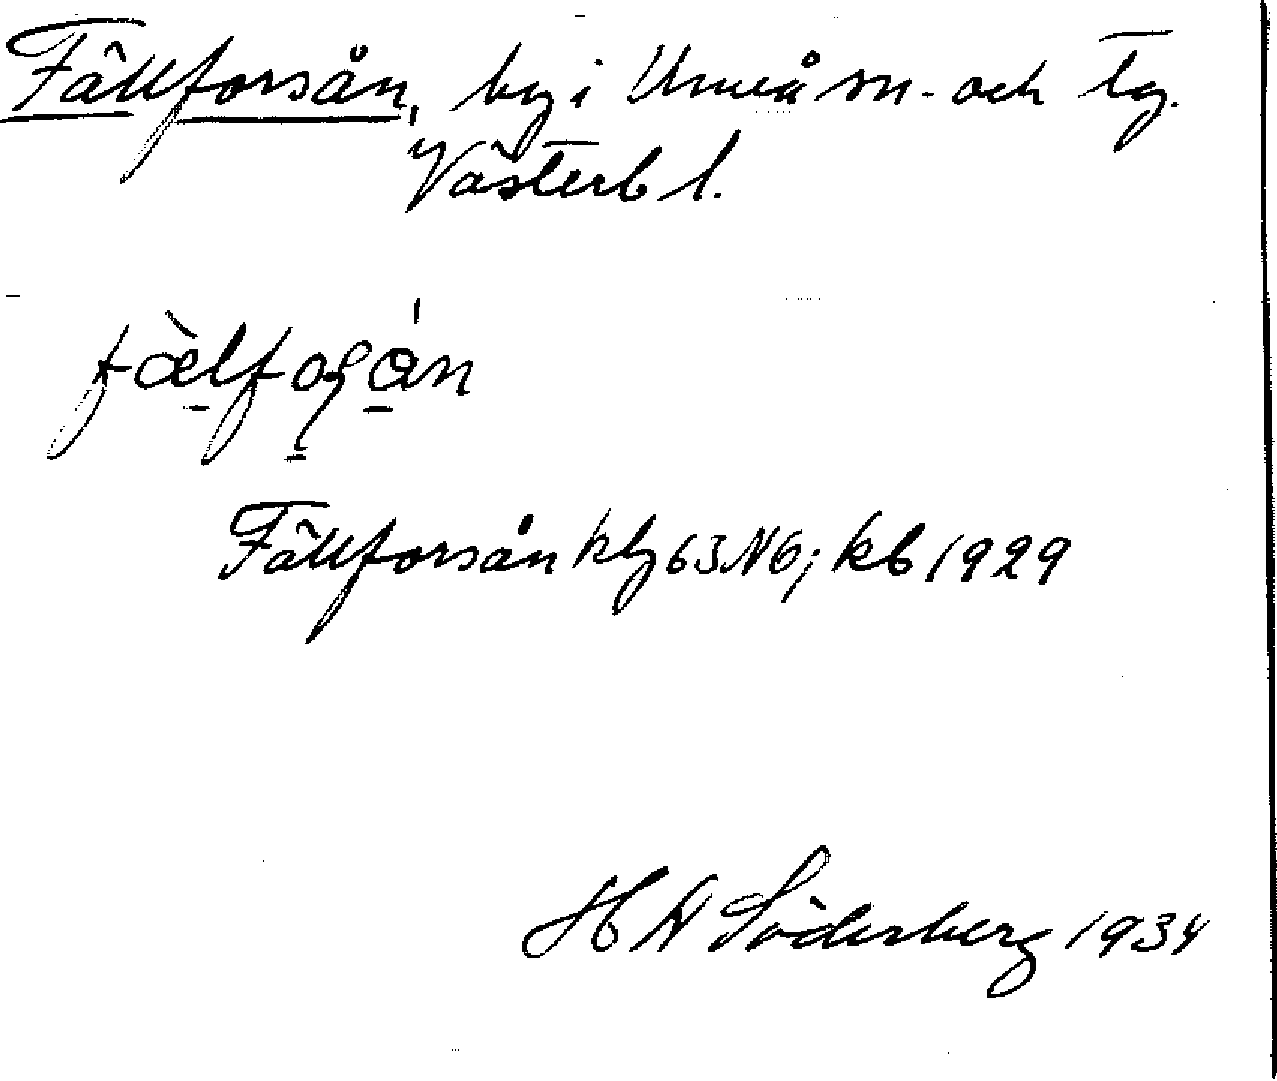 Fällforsån, by i Umeå sn. och tg.
Västerb l.
Fällforsån kbl 63 N6; kb 1929
H N Söderberg 1934